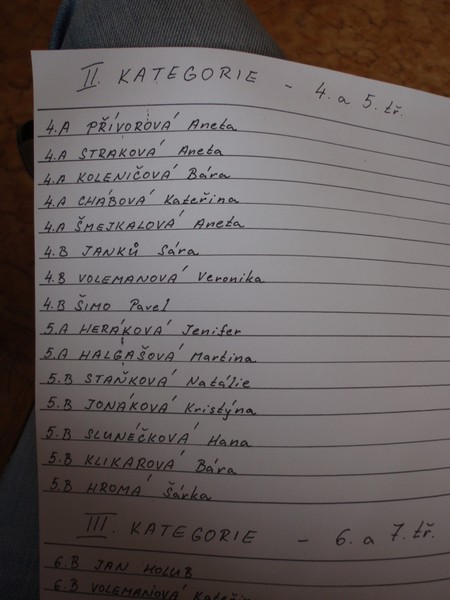 II. KATEGORIE - 4. a 5. tř.
4.A PŘÍVOROVÁ Aneta
4.A STRAKOVÁ Aneta
4.A KOLENIČOVÁ Bára
4.A CHÁBOVÁ Kateřina
4.A ŠMEJKALOVÁ Aneta
4.B JANKŮ Sára
4.B VOLEMANOVÁ Veronika
4.B ŠIMO Pavel
5.A HERÁKOVÁ Jenifer
5.A HALGAŠOVÁ Martina
5.B STAŇKOVÁ Natálie
5.B JONÁKOVÁ Kristýna
5.B SLUNÉČKOVÁ Hana
5.B KLIKAROVÁ Bára
5.B HROMÁ Šárka
III. KATEGORIE - 6. a 7. tř.
6.B JAN HOLUB
6.B VOLEMANOVÁ